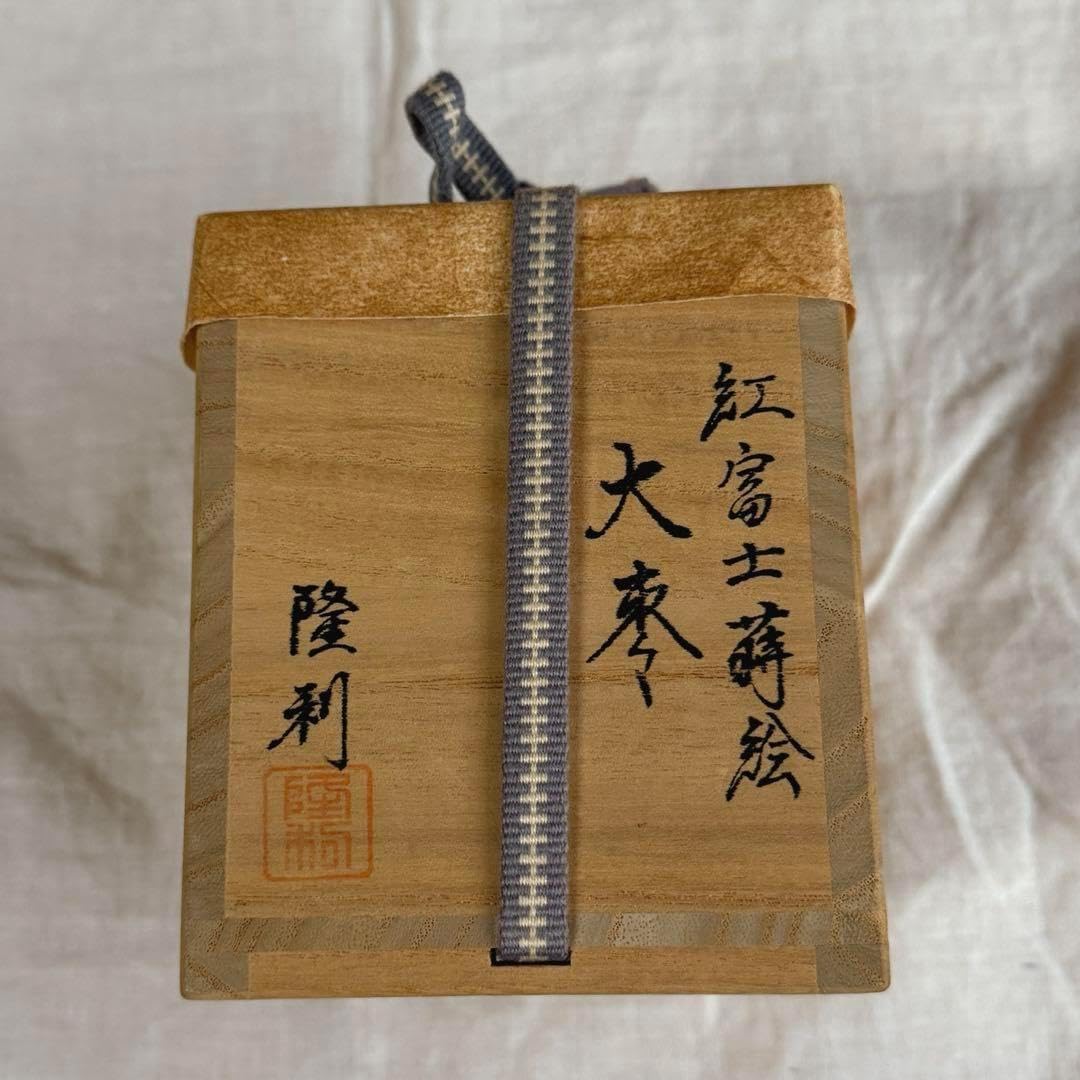 紅富士蒔絵
大棗
隆利